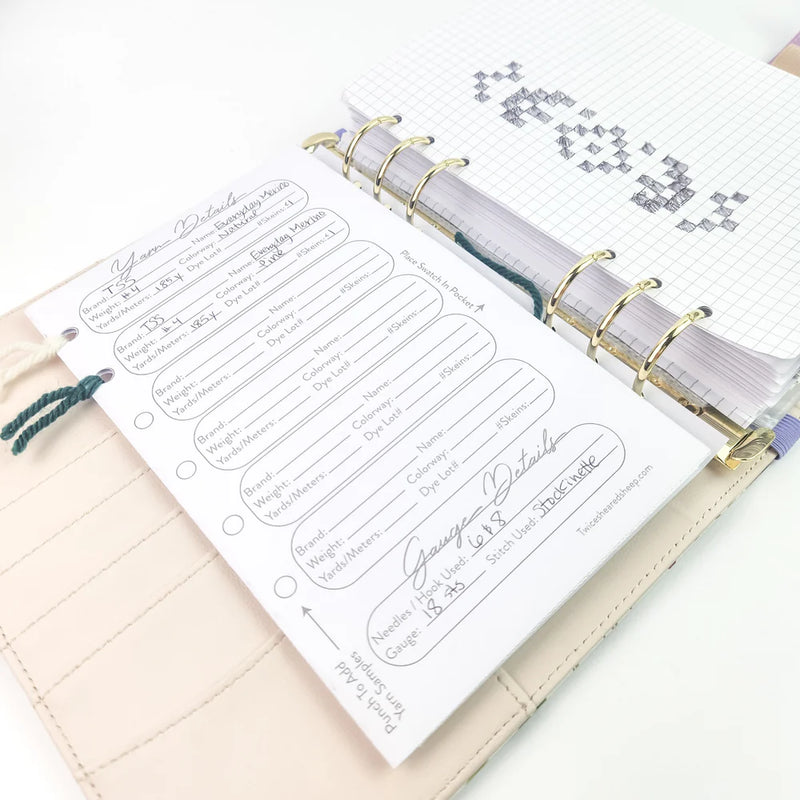 Yarn Details
Brand: TSS Name: Everyday Merino
Weight: #4 Colorway: Natural
Yards/Meters: 185 y Dye Lot# #Skeins: <1
Brand: TSS Name: Everyday Merino
Weight: #4 Colorway: Pine
Yards/Meters: 185 y Dye Lot# #Skeins: <1
Brand: Name:
Weight: Colorway:
Yards/Meters: Dye Lot# #Skeins:
Brand: Name:
Weight: Colorway:
Yards/Meters: Dye Lot# #Skeins:
Brand: Name:
Weight: Colorway:
Yards/Meters: Dye Lot# #Skeins:
Brand: Name:
Weight: Colorway:
Yards/Meters: Dye Lot# #Skeins:
Place Swatch In Pocket
Gauge Details
Needles / Hook Used: 6 & 8
Gauge: 18 sts Stitch Used: Stockinette
Twiceshearedsheep.com
Punch To Add
Yarn Samples